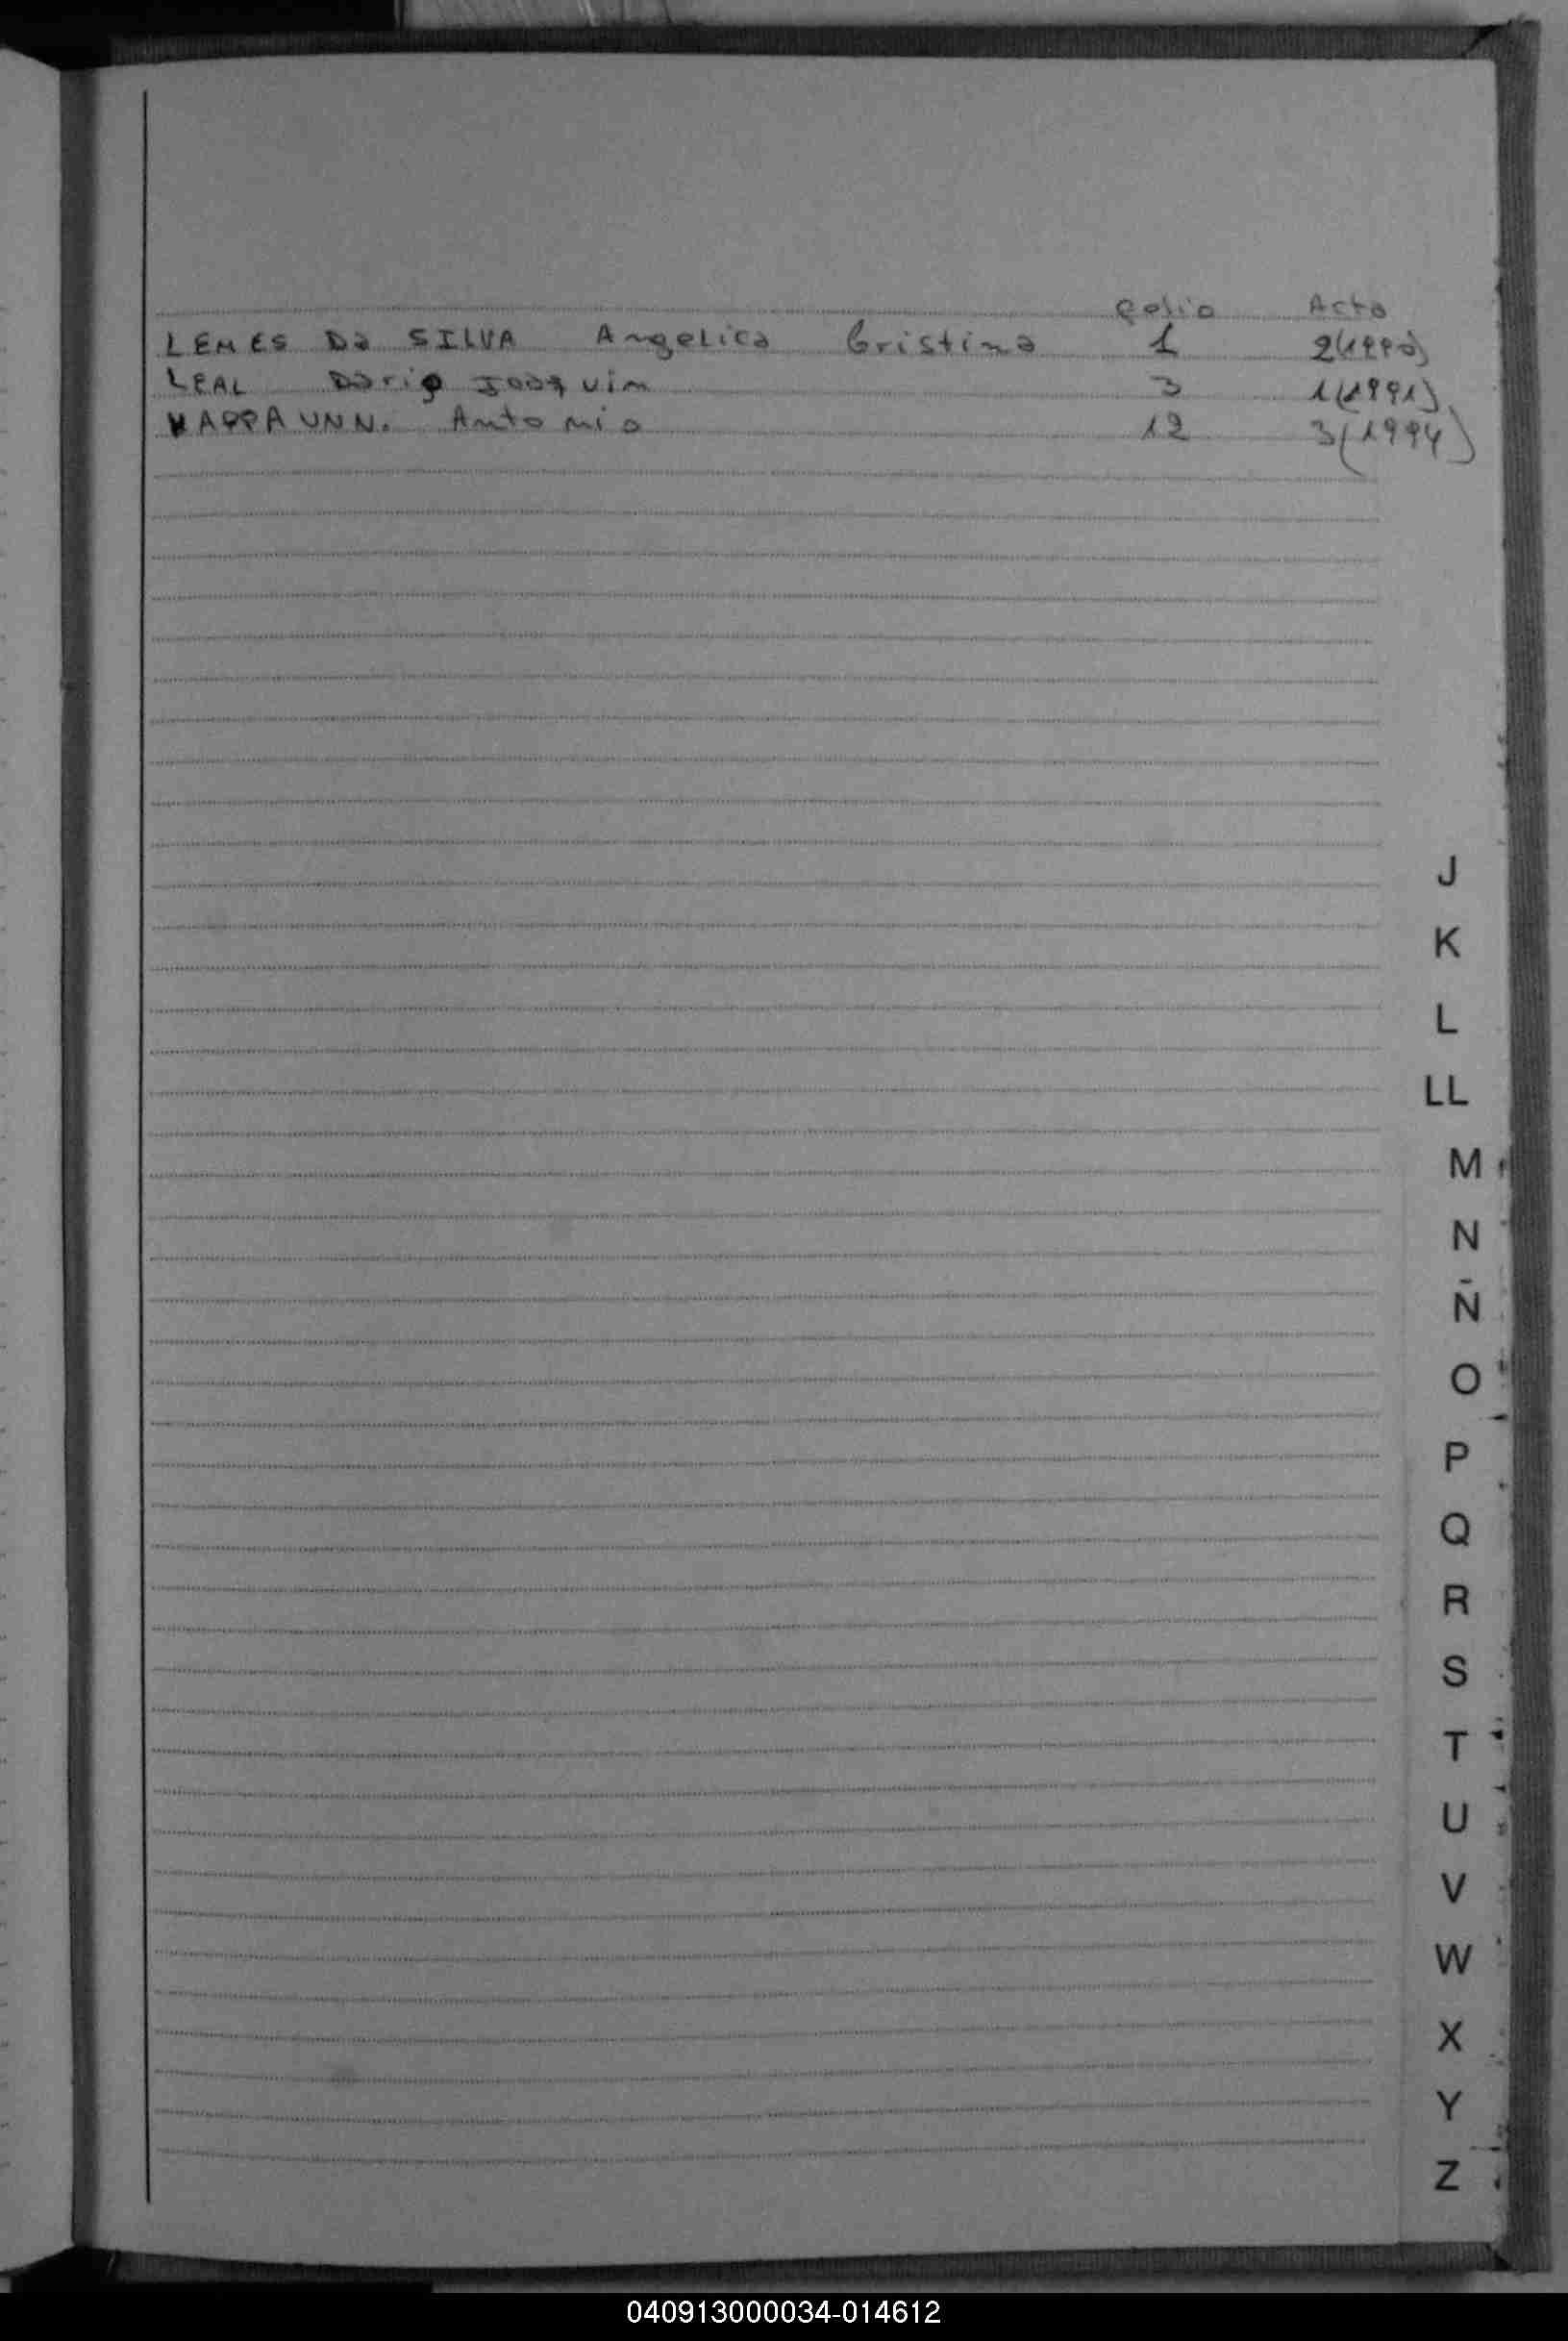 Folio Acta
LEMES Da SILVA Angelica Cristina 1 2(1990)
LEAL Dario Joaquin 3 1(1991)
Antonio 12 3(1994)
J
K
L
LL
M
N
Ñ
O
P
Q
R
S
T
U
V
W
X
Y
Z
040913000034-014612